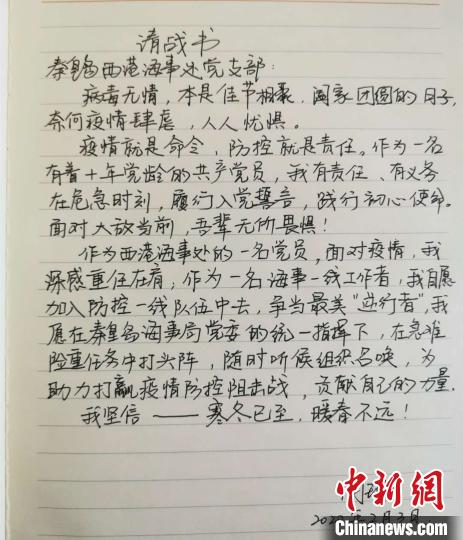 请战书
秦皇岛西港海事处党支部：
病毒无情，本是佳节相聚，阖家团圆的日子，
奈何疫情肆虐，人人忧惧。
疫情就是命令，防控就是责任。作为一名
有着十年党龄的共产党员，我有责任、有义务
在危急时刻，履行入党誓言，践行初心使命。
面对大敌当前，吾辈无所畏惧！
作为西港海事处的一名党员，面对疫情，我
深感重任在肩，作为一名海事一线工作者，我自愿
加入防控一线队伍中去，争当最美“逆行者”，我
愿在秦皇岛海事局党委的统一指挥下，在急难
险重任务中打头阵，随时听候组织召唤，为
助力打赢疫情防控阻击战，贡献自己的力量。
我坚信——寒冬已至，暖春不远！
年2月3日
中新网
Chinanews.com